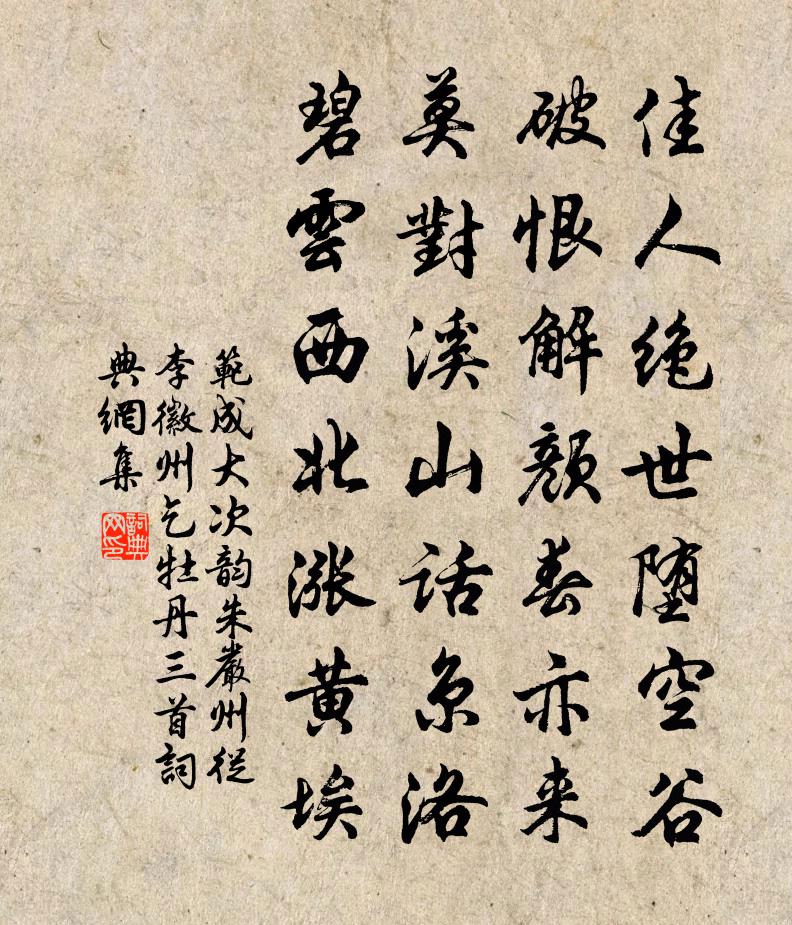 佳人绝世堕空谷
破恨解顏春亦来
莫對溪山話京洛
碧雲西北漲黄埃
範成大次韵朱嚴州從
李徽州乞牡丹三首詞
典網集
詞典网印